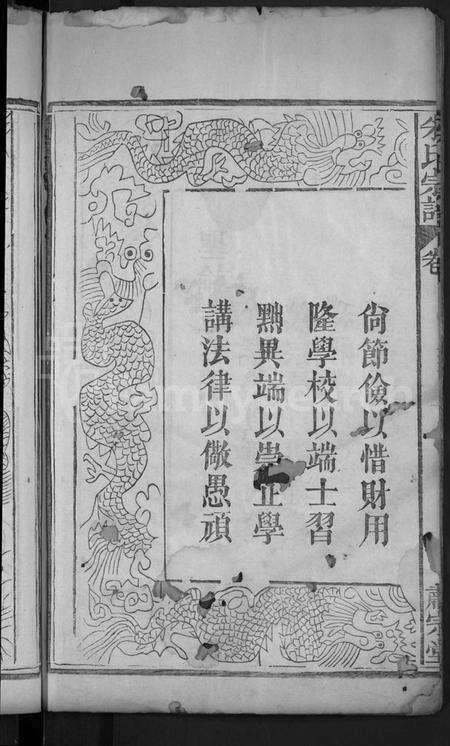 尙節儉以惜財用
隆學校以端士習
黜異端以崇正學
講法律以儆愚頑
氏宗譜
卷
宗堂